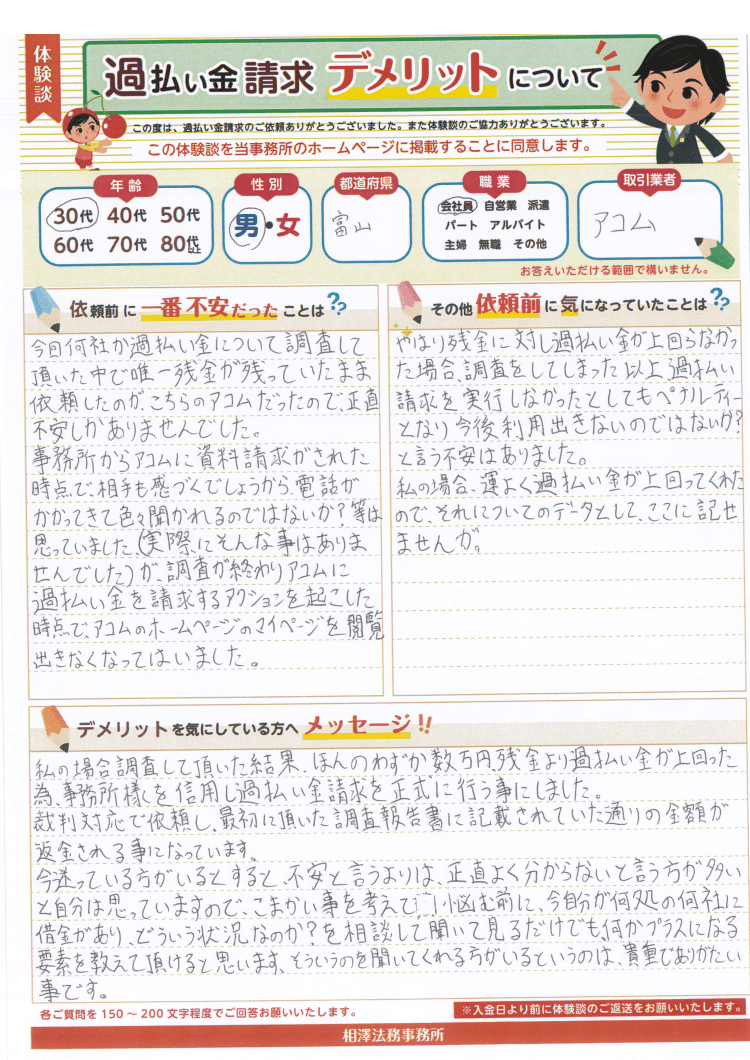 体験談
過払い金請求 デメリットについて
この度は、過払い金請求のご依頼ありがとうございました。また体験談のご協力ありがとうございます。
この体験談を当事務所のホームページに掲載することに同意します。
年齢
30代 40代 50代
60代 70代 80代以上
性別
男・女
都道府県
富山
職業
会社員 自営業 派遣
パート アルバイト
主婦 無職 その他
取引業者
アコム
お答えいただける範囲で構いません。
依頼前に一番不安だったことは??
今回何社か過払い金について調査して
頂いた中で唯一残金が残っていたまま
依頼したのが、こちらのアコムだったので、正直
不安しかありませんでした。
事務所からアコムに資料請求がされた
時点で、相手も感づくでしょうから、電話が
かかってきて色々聞かれるのではないか?等は
思っていました、(実際にそんな事はありま
せんでした)が、調査が終わりアコムに
過払い金を請求するアクションを起こした
時点で、アコムのホームページのマイページを閲覧
出きなくなってはいました。
その他依頼前に気になっていたことは??
やはり残金に対し過払い金が上回らなかっ
た場合、調査をしてしまった以上過払い
請求を実行しなかったとしてもペナルティー
となり今後利用出きないのではないか?
と言う不安はありました。
私の場合、運よく過払い金が上回ってくれた
ので、それについてのデータとして、ここに記せ
ませんが。
デメリットを気にしている方へメッセージ!!
私の場合調査して頂いた結果、ほんのわずか数万円残金より過払い金が上回った
為、事務所様を信用し過払い金請求を正式に行う事にしました。
裁判対応で依頼し、最初に頂いた調査報告書に記載されていた通りの金額が
返金される事になっています。
今迷っている方がいるとすると、不安と言うよりは、正直よく分からないと言う方が多い
と自分は思っていますので、こまかい事を考えて悩む前に、今自分が何処の何社に
借金があり、どういう状況なのか?を相談して聞いて見るだけでも、何かプラスになる
要素を教えて頂けると思います、そういうのを聞いてくれる方がいるというのは、貴重でありがたい
事です。
各ご質問を150〜200文字程度でご回答お願いいたします。
※入金日より前に体験談のご返送をお願いいたします。
相澤法務事務所